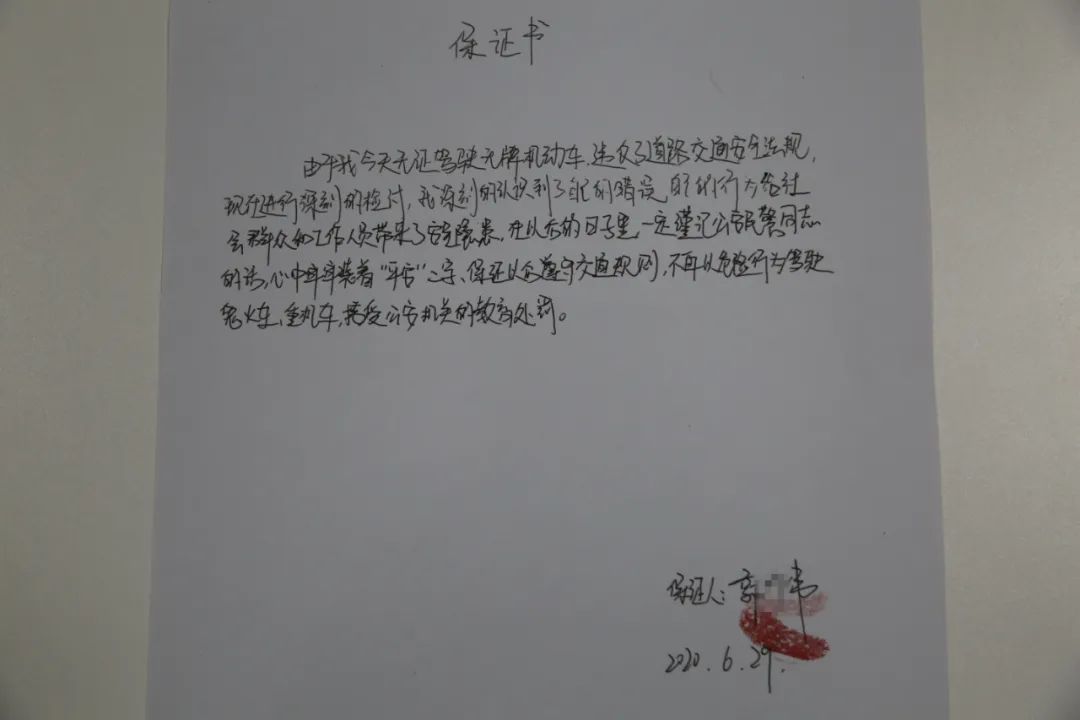 保证书
由于我今天无证驾驶无牌机动车,违反了道路交通安全法规,
现在进行深刻的检讨,我深刻的认识到了自己的错误,自己的行为给社
会群众和工作人员带来了安全隐患,在以后的日子里,一定谨记公安民警同志
的话,心中牢牢装着"平安"二字、保证以后遵守交通规则,不再以危险行为驾驶
摩托车,接受公安机关的教育处罚。
保证人:韦
2020.6.29.